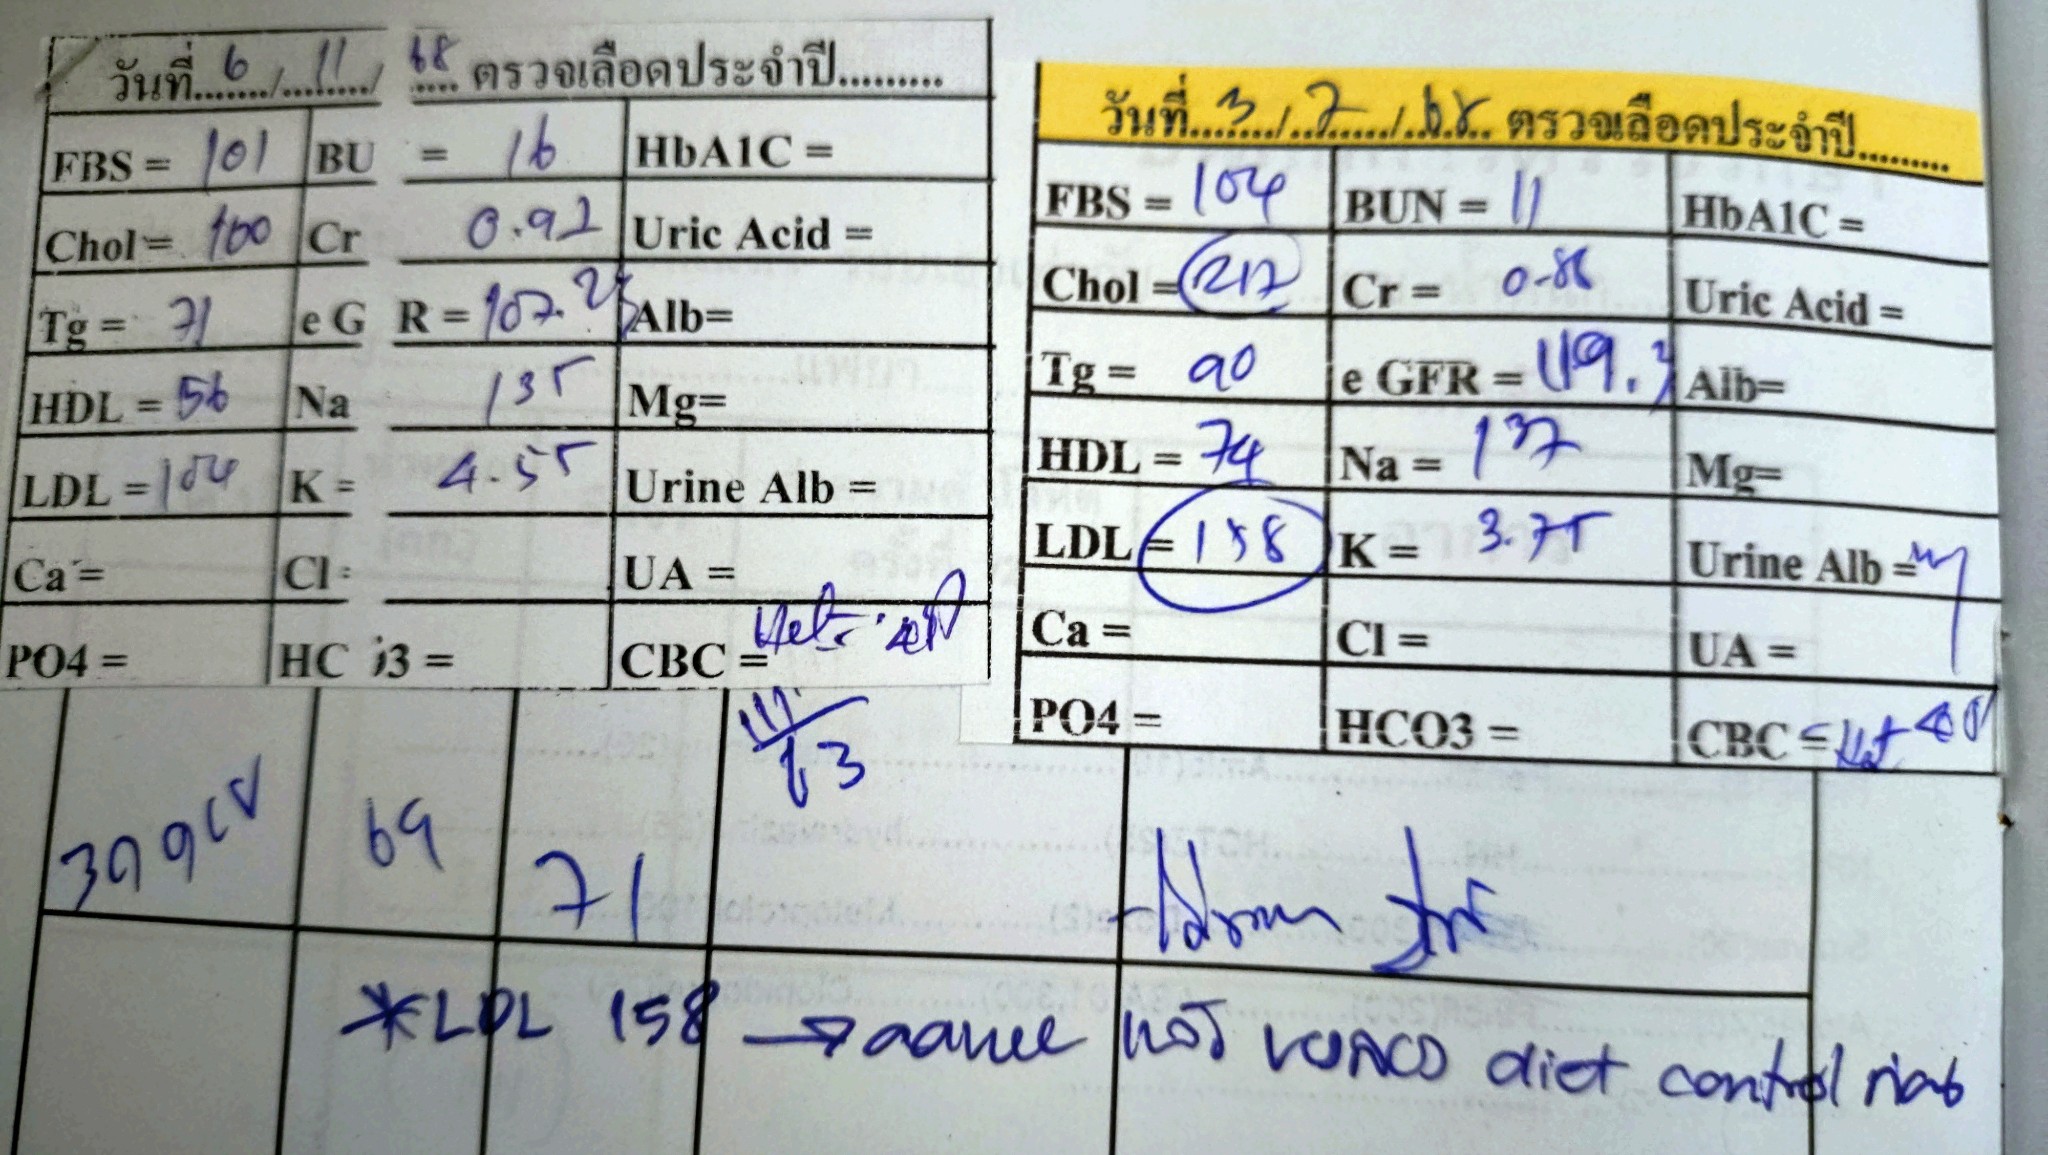 วันที่ 6 / 11 / 68 ตรวจเลือดประจำปี.........
FBS = 101 BU = 16 HbA1C =
Chol = 160 Cr 0.92 Uric Acid =
Tg = 71 e G R = 107.25 Alb=
HDL = 56 Na 135 Mg=
LDL = 104 K = 4.55 Urine Alb =
Ca = Cl = UA =
PO4 = HC 3 = CBC = Hct
วันที่ 3 / 7 / 68 ตรวจเลือดประจำปี.........
FBS = 104 BUN = 11 HbA1C =
Chol = 217 Cr = 0.86 Uric Acid =
Tg = 90 e GFR = 119.3 Alb=
HDL = 74 Na = 137 Mg=
LDL = 158 K = 3.75 Urine Alb =
Ca = Cl = UA =
PO4 = HCO3 = CBC = Hct
69 71
*LDL 158 → diet control